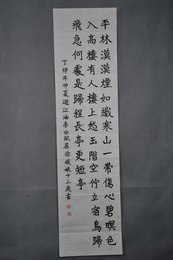 平林漠漠煙如織寒山一帶傷心碧暝色
入高樓有人樓上愁玉階空佇立宿鳥歸
飛急何處是歸程長亭更短亭
丁卯年仲夏遊江油李白故居
十二歲書